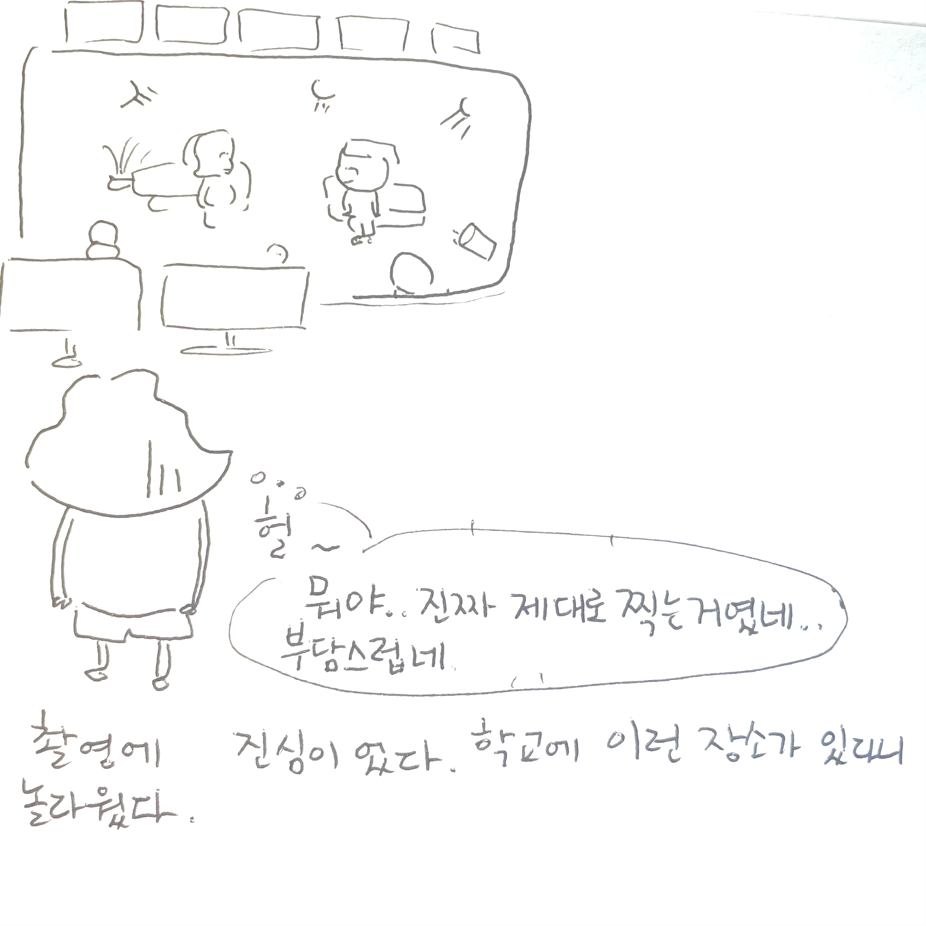 헐~
뭐야.. 진짜 제대로 찍는거였네..
부담스럽네.
촬영에 진심이 었다. 학교에 이런 장소가 있다니
놀라웠다.